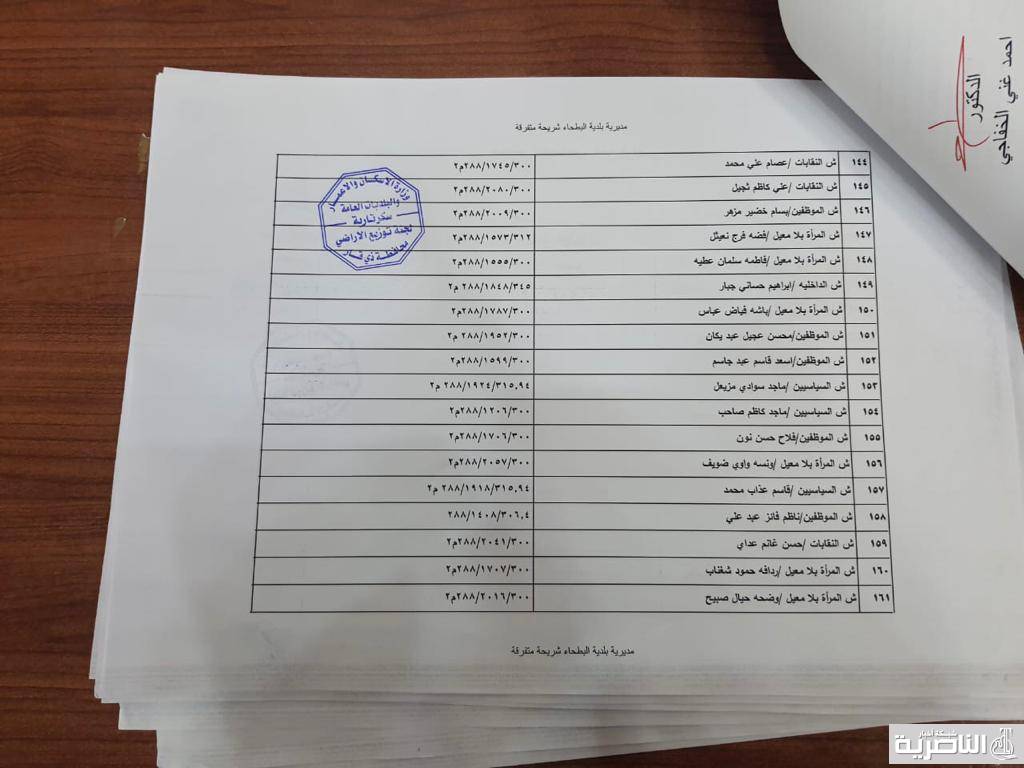 الدكتور
احمد غني الخفاجي
مديرية بلدية البطحاء شريحة متفرقة
١٤٤ ش النقابات /عصام علي محمد ٢٨٨/١٧٤٥/٣٠٠م٢
١٤٥ ش النقابات /علي كاظم ثجيل ٢٨٨/٢٠٨٠/٣٠٠م٢
١٤٦ ش الموظفين/بسام خضير مزهر ٢٨٨/٢٠٠٩/٣٠٠م٢
١٤٧ ش المرأة بلا معيل /فضه فرج نعيثل ٢٨٨/١٥٧٣/٣١٢م٢
١٤٨ ش المرأة بلا معيل /فاطمه سلمان عطيه ٢٨٨/١٥٥٥/٣٠٠م٢
١٤٩ ش الداخليه /ابراهيم حساني جبار ٢٨٨/١٨٤٨/٣٤٥ م٢
١٥٠ ش المرأة بلا معيل /ياشه فياض عباس ٢٨٨/١٧٨٧/٣٠٠م٢
١٥١ ش الموظفين/محسن عجيل عبد يكان ٢٨٨/١٩٥٢/٣٠٠ م٢
١٥٢ ش الموظفين/اسعد قاسم عبد جاسم ٢٨٨/١٥٩٩/٣٠٠م٢
١٥٣ ش السياسيين /ماجد سوادي مزيعل ٢٨٨/١٩٢٤/٣١٥,٩٤ م٢
١٥٤ ش السياسيين /ماجد كاظم صاحب ٢٨٨/١٢٠٦/٣٠٠م٢
١٥٥ ش الموظفين/فلاح حسن نون ٢٨٨/١٧٠٦/٣٠٠م٢
١٥٦ ش المرأة بلا معيل /ونسه واوي ضويف ٢٨٨/٢٠٥٧/٣٠٠م٢
١٥٧ ش السياسيين /قاسم عذاب محمد ٢٨٨/١٩١٨/٣١٥,٩٤ م٢
١٥٨ ش الموظفين/ناظم فائز عبد علي ٢٨٨/١٤٠٨/٣٠٦,٤
١٥٩ ش النقابات /حسن غانم عداي ٢٨٨/٢٠٤١/٣٠٠م٢
١٦٠ ش المرأة بلا معيل /ردافه حمود شغناب ٢٨٨/١٧٠٧/٣٠٠م٢
١٦١ ش المرأة بلا معيل /وضحه حيال صبيح ٢٨٨/٢٠١٦/٣٠٠م٢
وزارة الاسكان والاعمار
والبلديات العامة
سكرتارية
لجنة توزيع الاراضي
بمحافظة ذي قار
مديرية بلدية البطحاء شريحة متفرقة
شبكة أخبار
الناصرية